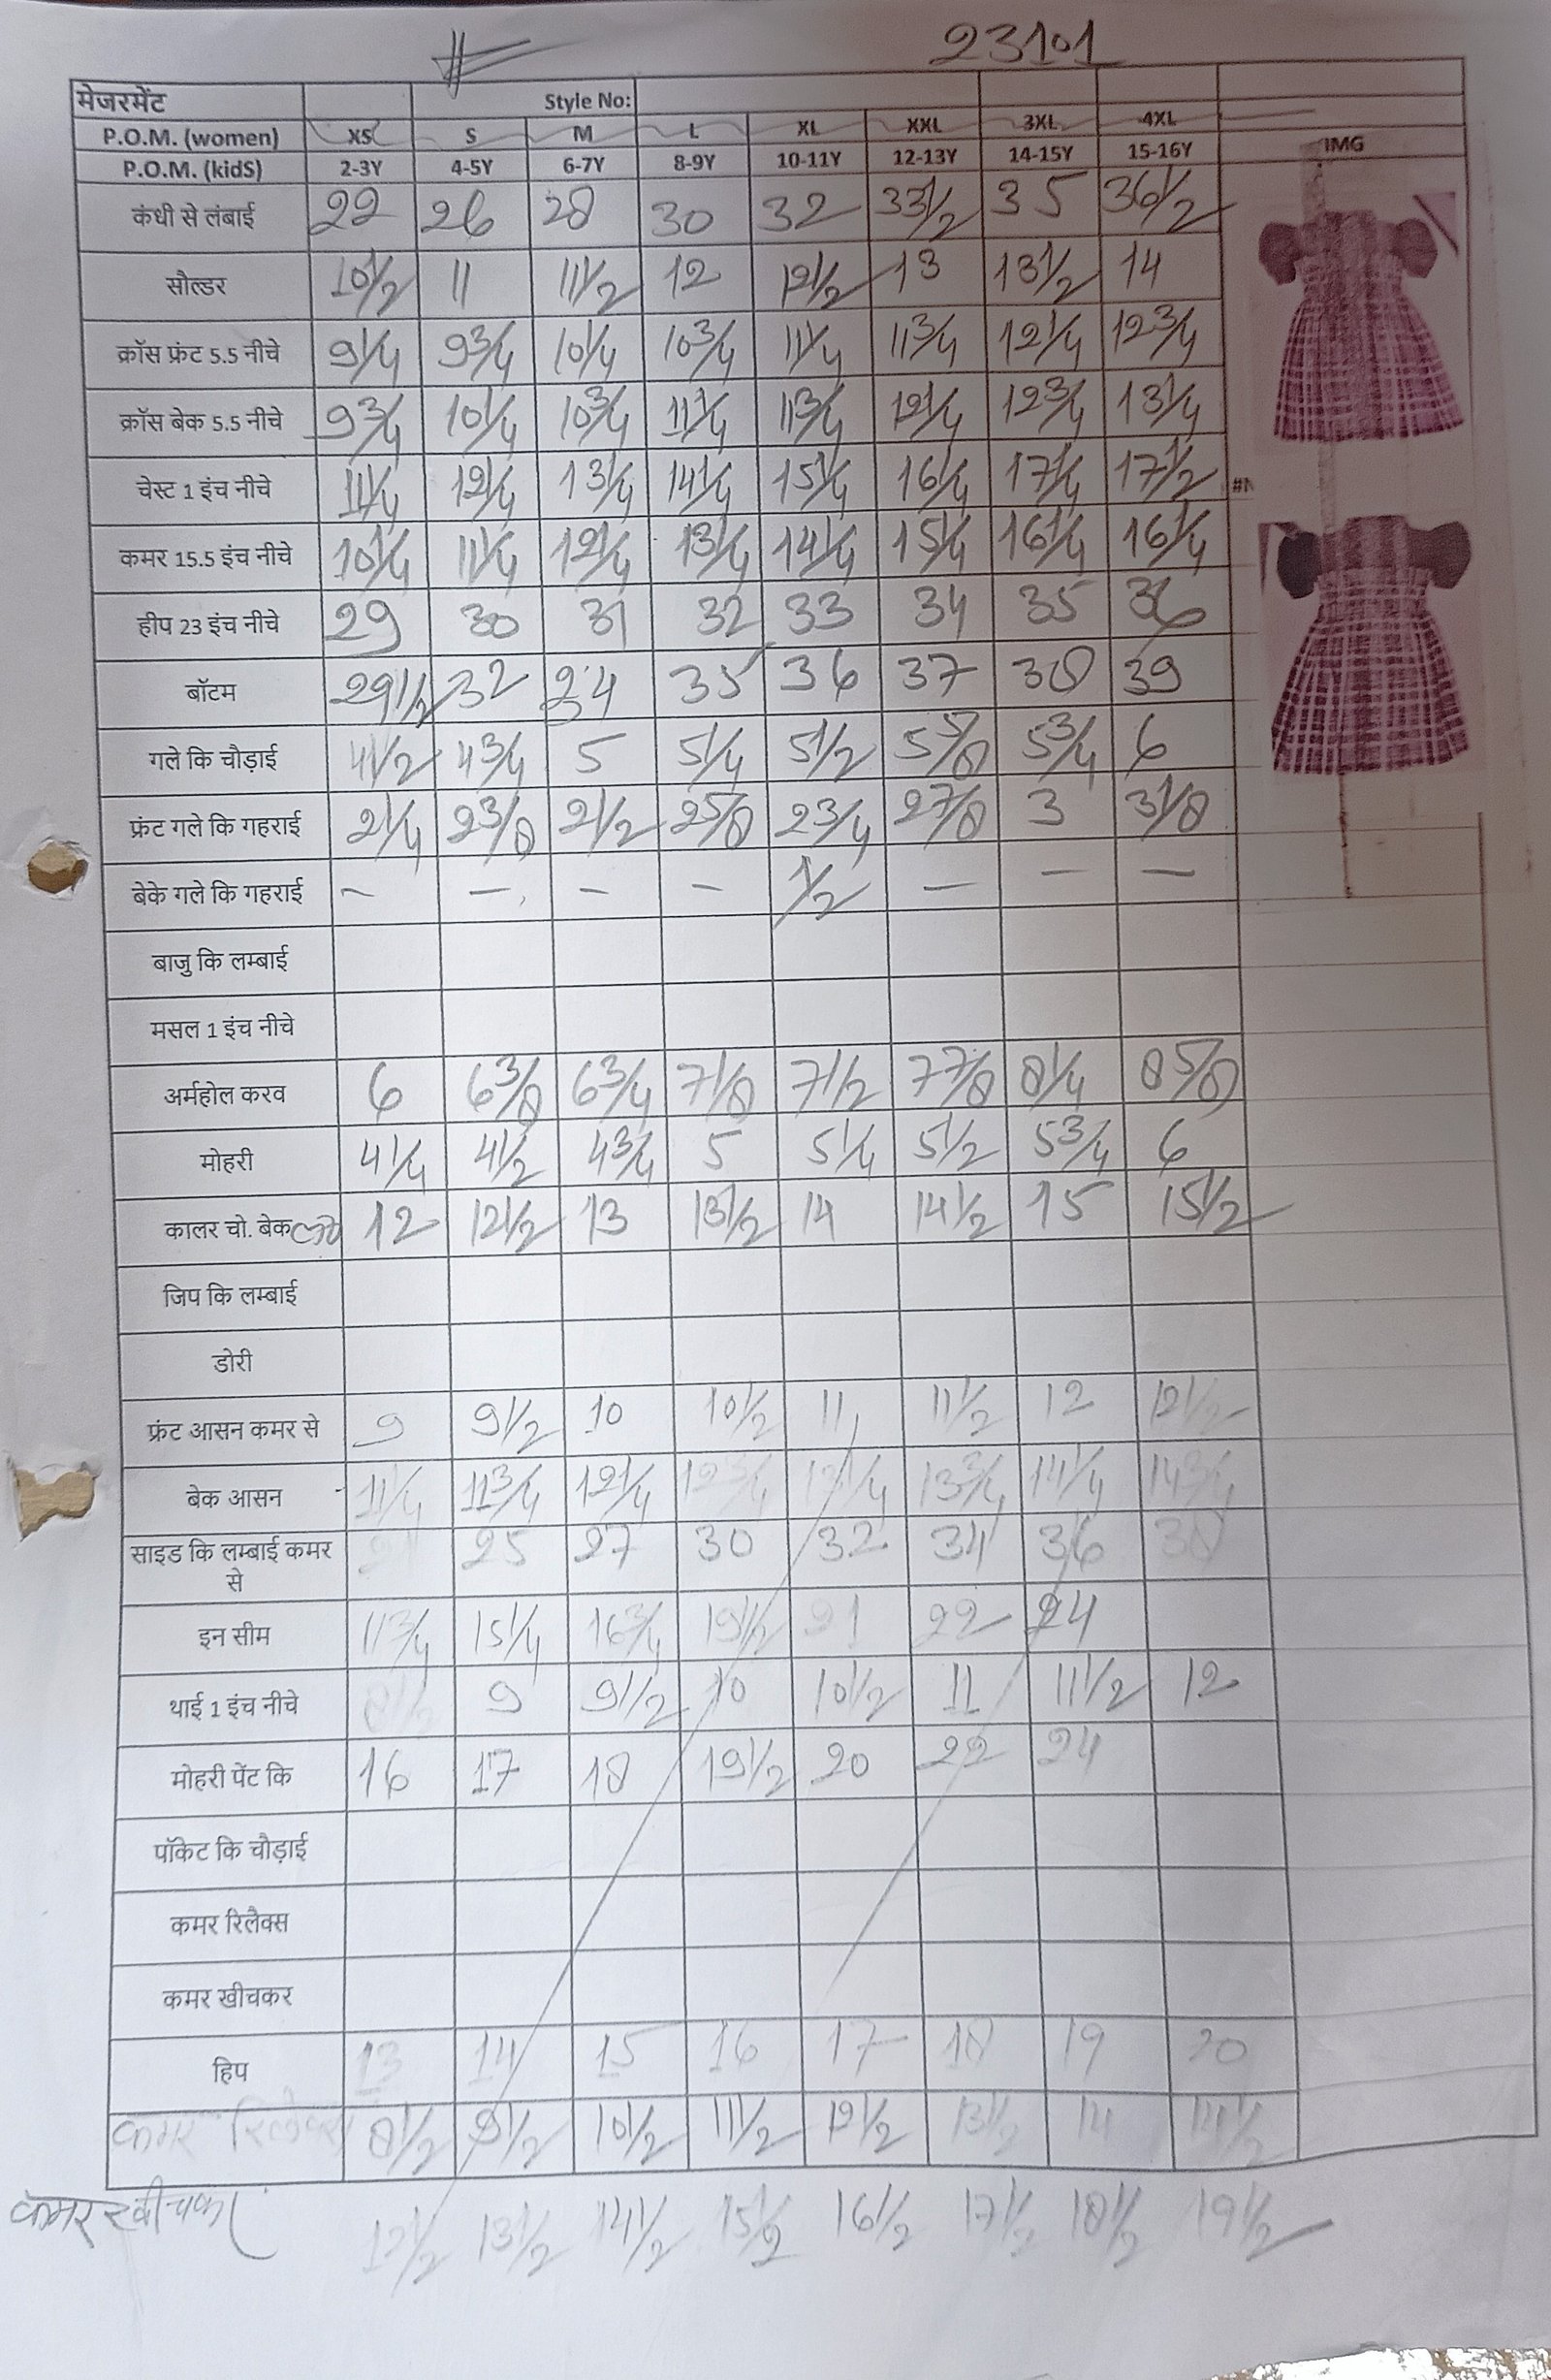 23101
मेजरमेंट Style No:
P.O.M. (women) XS S M L XL XXL 3XL 4XL
P.O.M. (kidS) 2-3Y 4-5Y 6-7Y 8-9Y 10-11Y 12-13Y 14-15Y 15-16Y IMG
कंधी से लंबाई 22 26 28 30 32 33 1/2 35 36 1/2
सौल्डर 10 1/2 11 11 1/2 12 12 1/2 13 13 1/2 14
क्रॉस फ्रंट 5.5 नीचे 9 1/4 9 3/4 10 1/4 10 3/4 11 1/4 11 3/4 12 1/4 12 3/4
क्रॉस बेक 5.5 नीचे 9 3/4 10 1/4 10 3/4 11 1/4 11 3/4 12 1/4 12 3/4 13 1/4
चेस्ट 1 इंच नीचे 11 1/4 12 1/4 13 1/4 14 1/4 15 1/4 16 1/4 17 1/4 17 1/2 #N
कमर 15.5 इंच नीचे 10 1/4 11 1/4 12 1/4 13 1/4 14 1/4 15 1/4 16 1/4 16 1/4
हीप 23 इंच नीचे 29 30 31 32 33 34 35 36
बॉटम 29 1/2 32 34 35 36 37 38 39
गले कि चौड़ाई 4 1/2 4 3/4 5 5 1/4 5 1/2 5 5/8 5 3/4 6
फ्रंट गले कि गहराई 2 1/4 2 3/8 2 1/2 2 5/8 2 3/4 2 7/8 3 3 1/8
बेके गले कि गहराई – – – – 1/2 – – –
बाजु कि लम्बाई
मसल 1 इंच नीचे
अर्महोल करव 6 6 3/8 6 3/4 7 1/8 7 1/2 7 7/8 8 1/4 8 5/8
मोहरी 4 1/4 4 1/2 4 3/4 5 5 1/4 5 1/2 5 3/4 6
कालर चो. बेक 12 12 1/2 13 13 1/2 14 14 1/2 15 15 1/2
जिप कि लम्बाई
डोरी
फ्रंट आसन कमर से 9 9 1/2 10 10 1/2 11 11 1/2 12 12 1/2
बेक आसन 11 1/4 11 3/4 12 1/4 12 3/4 13 1/4 13 3/4 14 1/4 14 3/4
साइड कि लम्बाई कमर
से 25 27 30 32 34 36 38
इन सीम 11 3/4 15 1/4 16 3/4 19 1/2 21 22 24
थाई 1 इंच नीचे 8 1/2 9 9 1/2 10 10 1/2 11 11 1/2 12
मोहरी पेंट कि 16 17 18 19 1/2 20 22 24
पॉकेट कि चौड़ाई
कमर रिलैक्स
कमर खीचकर
हिप 13 14 15 16 17 18 19 20
कमर रिलेक्स 8 1/2 9 1/2 10 1/2 11 1/2 12 1/2 13 1/2 14 14 1/2
कमर खीचकर 12 1/2 13 1/2 14 1/2 15 1/2 16 1/2 17 1/2 18 1/2 19 1/2